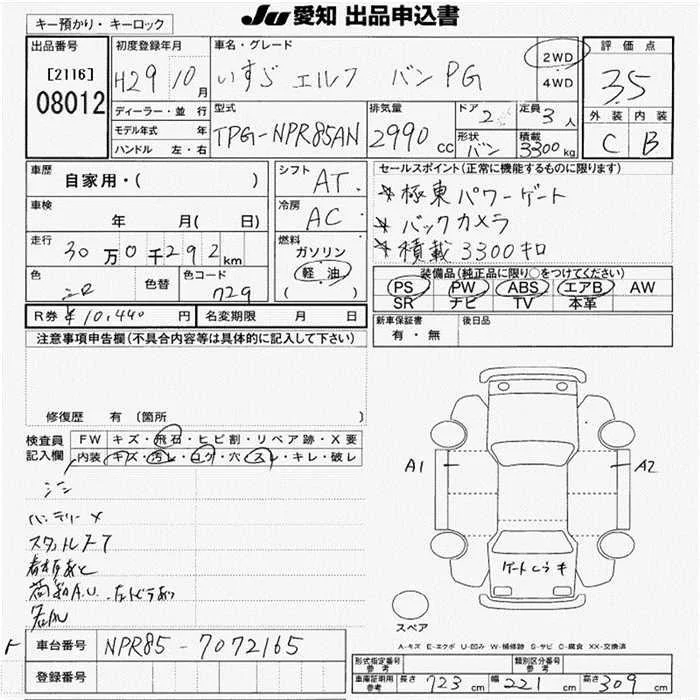 キー預かり・キーロック
JU 愛知 出品申込書
出品番号
[2116]
08012
初度登録年月
H29 10月
ディーラー・並行
モデル年式 年
ハンドル 左・右
車名・グレード
いすゞ エルフ バン PG
2WD
4WD
型式
TPG-NPR85AN
排気量
2990 cc
ドア
2
定員
3人
形状
バン
積載
3300kg
評価点
3.5
外装 内装
C B
車歴
自家用・( )
車検
年 月( 日)
走行
30万0千292km
色
シロ
色替
色コード
729
シフト
AT
冷房
AC
燃料
ガソリン
軽・油
( )
R券 ¥10,440円
名変期限 月 日
セールスポイント(正常に機能するものに限ります)
*極東パワーゲート
*バックカメラ
*積載3300キロ
装備品(純正品に限り○をつけてください)
PS PW ABS エアB AW
SR ナビ TV 本革
新車保証書
有・無
後日品
注意事項申告欄(不具合内容等は具体的に記入して下さい)
修復歴 有(箇所 )
検査員
記入欄
FW キズ・飛石・ヒビ割・リペア跡・X要
内装 キズ・汚レ・コゲ・穴・スレ・キレ・破レ
バッテリー×
荷室A.U.
A1
A2
スペア
A-キズ E-エクボ U-凹み W-補修跡 S-サビ C-腐食 XX-交換済
車台番号
NPR85-7072165
登録番号
形式指定番号
参考
類別区分番号
参考
車庫証明用
参考
長さ 723cm
幅 221cm
高さ 309cm